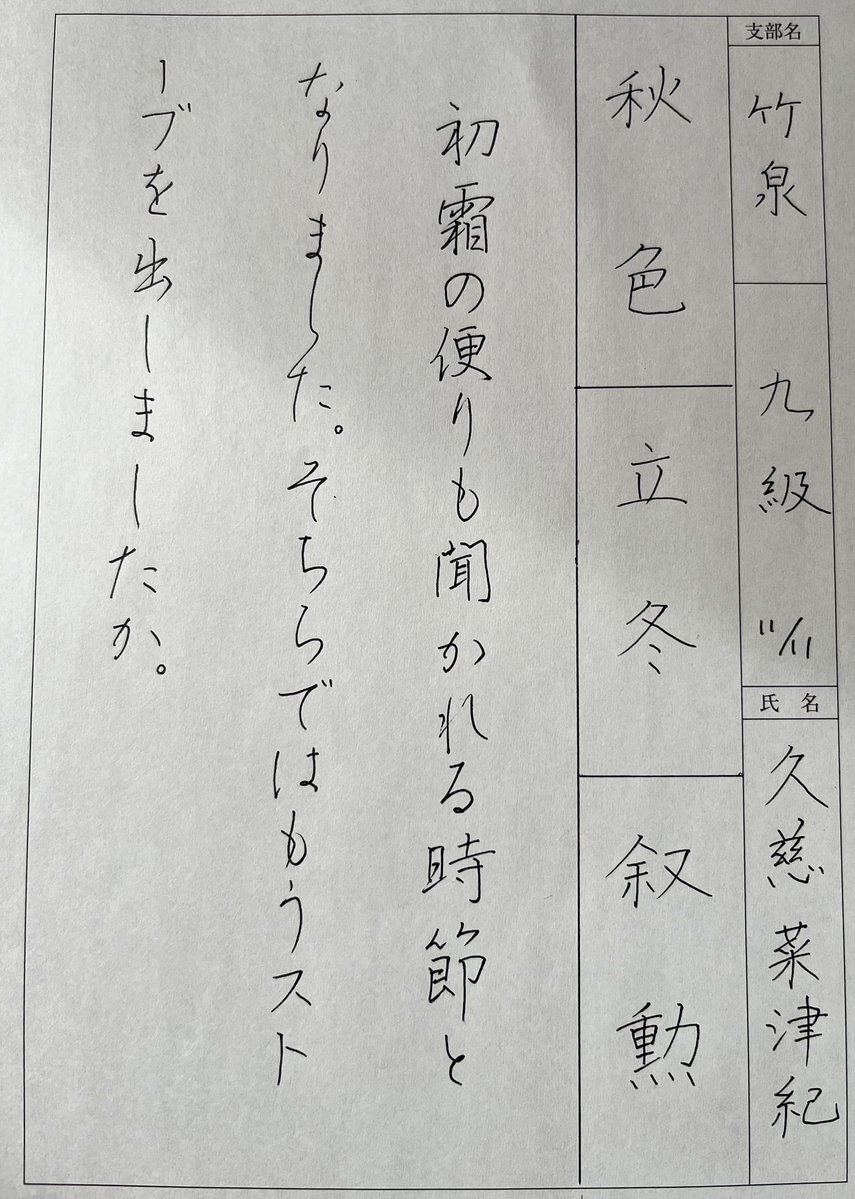 支部名
竹泉
九級 11/11
氏名
久慈菜津紀
秋色
立冬
叙勲
初霜の便りも聞かれる時節と
なりました。そちらではもうスト
ーブを出しましたか。